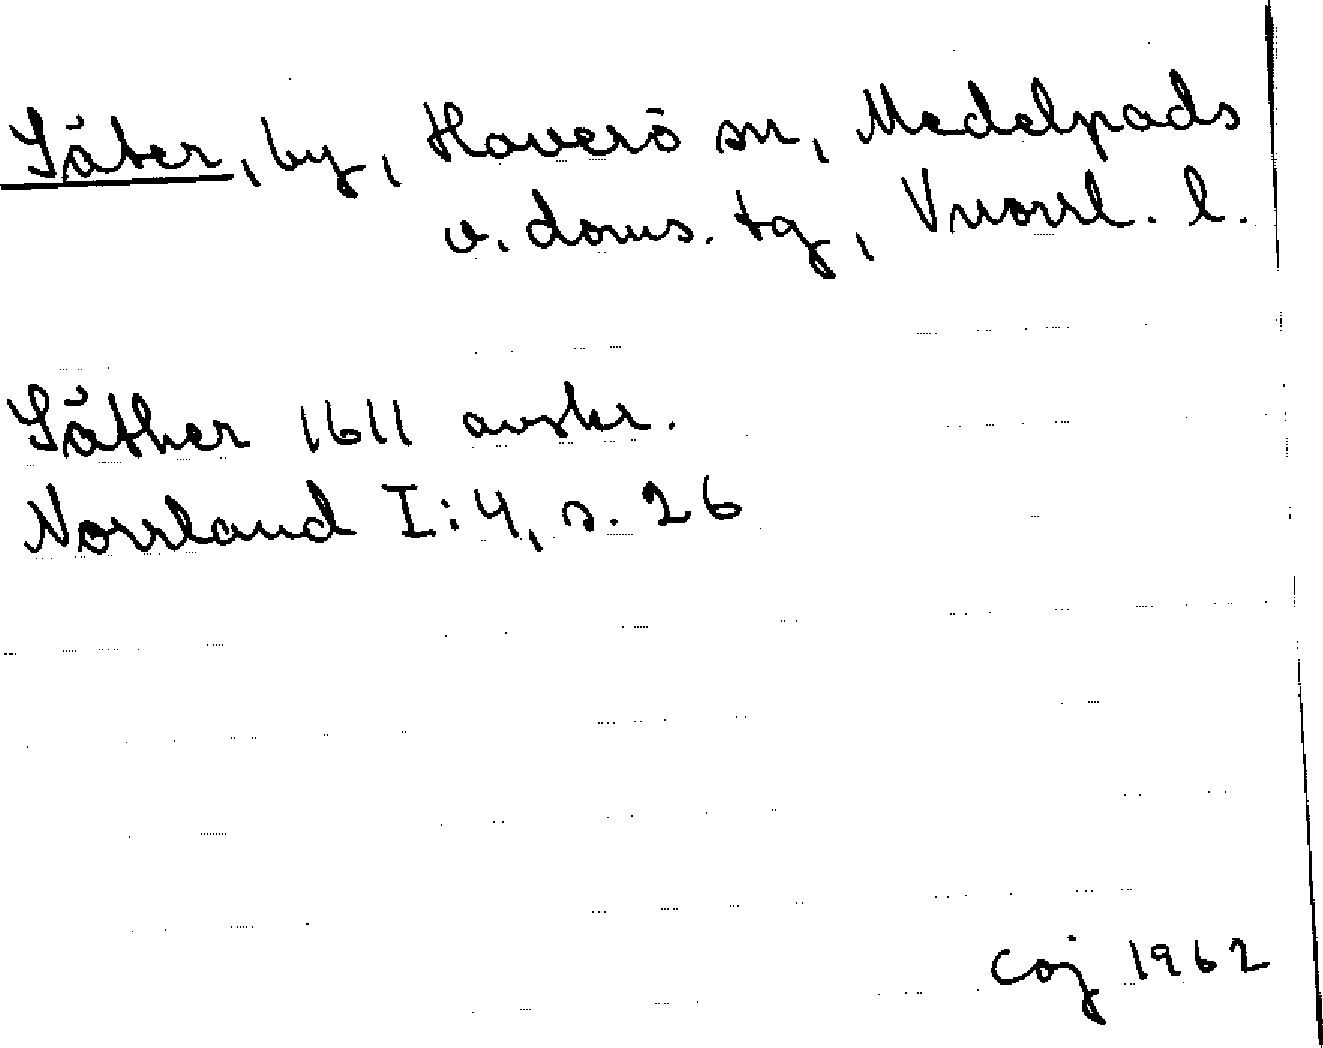 Säter, by, Haverö sn, Medelpads
v. doms. tg, Vnorrl. l.
Säther 1611 avskr.
Norrland I:4, s. 26
Coj 1962